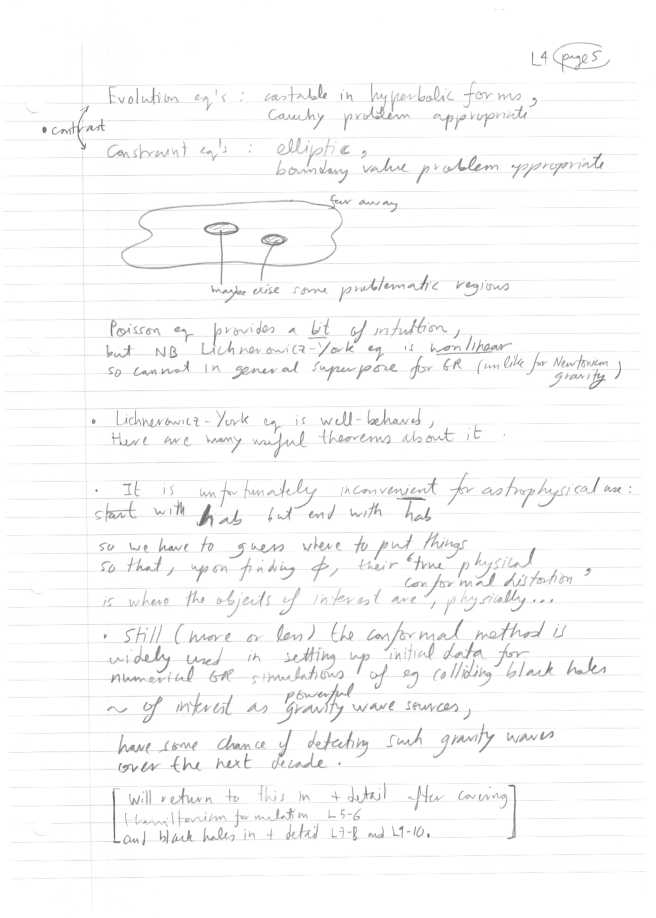 L4 page 5
Evolution eq's : castable in hyperbolic forms,
Cauchy problem appropriate
• contrast
Constraint eq's : elliptic,
boundary value problem appropriate
far away
maybe excise some problematic regions
Poisson eq provides a bit of intuition,
but NB Lichnerowicz-York eq is nonlinear
so cannot in general superpose for GR (unlike for Newtonian
gravity)
• Lichnerowicz-York eq is well-behaved,
there are many useful theorems about it.
• It is unfortunately inconvenient for astrophysical use:
start with hab but end with hab
so we have to guess where to put things
so that, upon finding φ, their "true physical
conformal distortion"
is where the objects of interest are, physically...
• Still (more or less) the conformal method is
widely used in setting up initial data for
numerical GR simulations of eg colliding black holes
~ of interest as powerful gravity wave sources,
have some chance of detecting such gravity waves
over the next decade.
[will return to this in + detail after covering
Hamiltonian formulation L5-6
and black holes in + detail L7-8 and L9-10.]